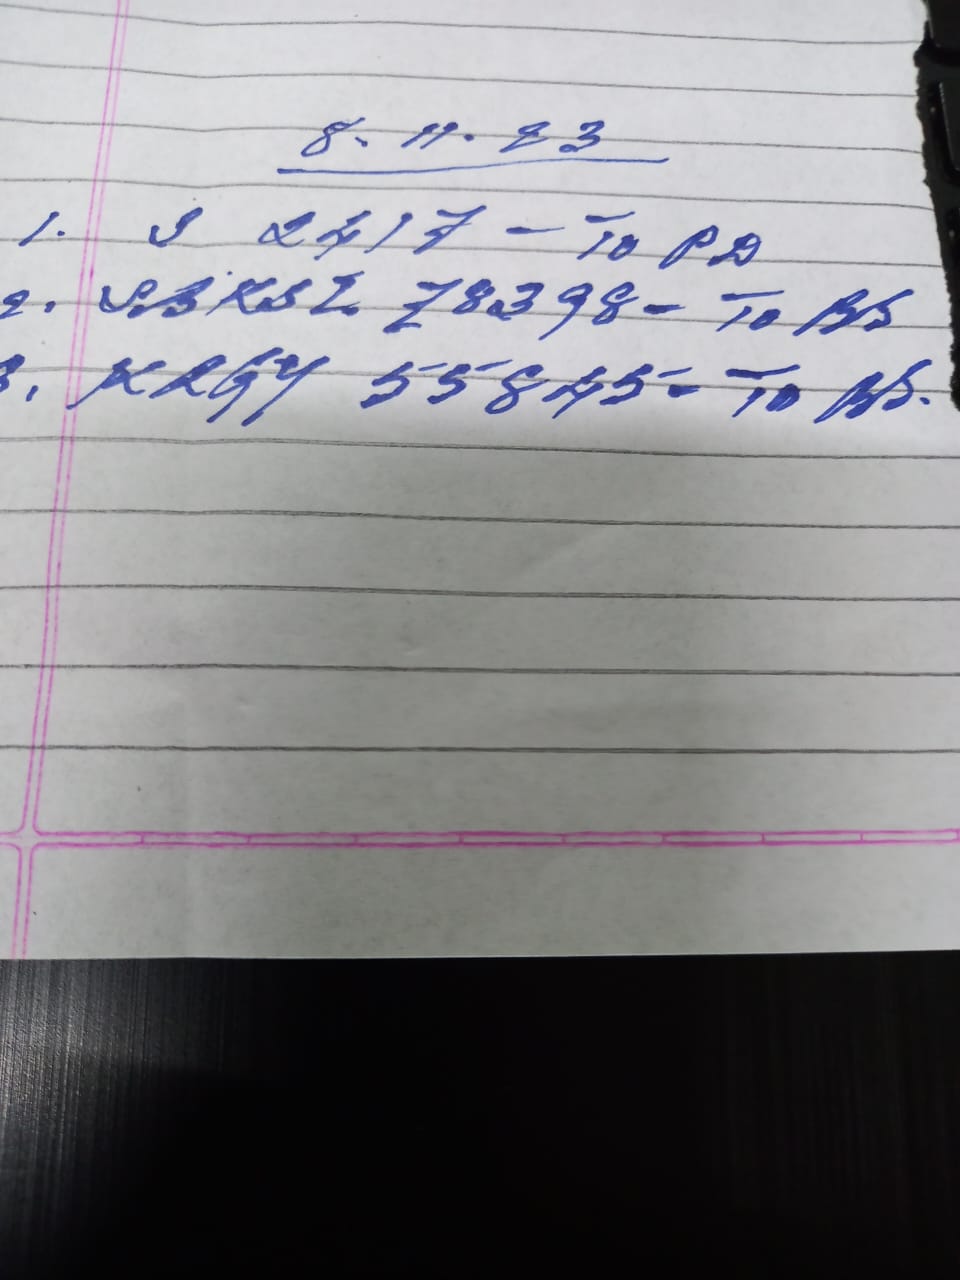 8.11.23
1. S 2417 - To PD
2. SBKSZ 78398 - To BS
3. KRGY 55845 - To BS.